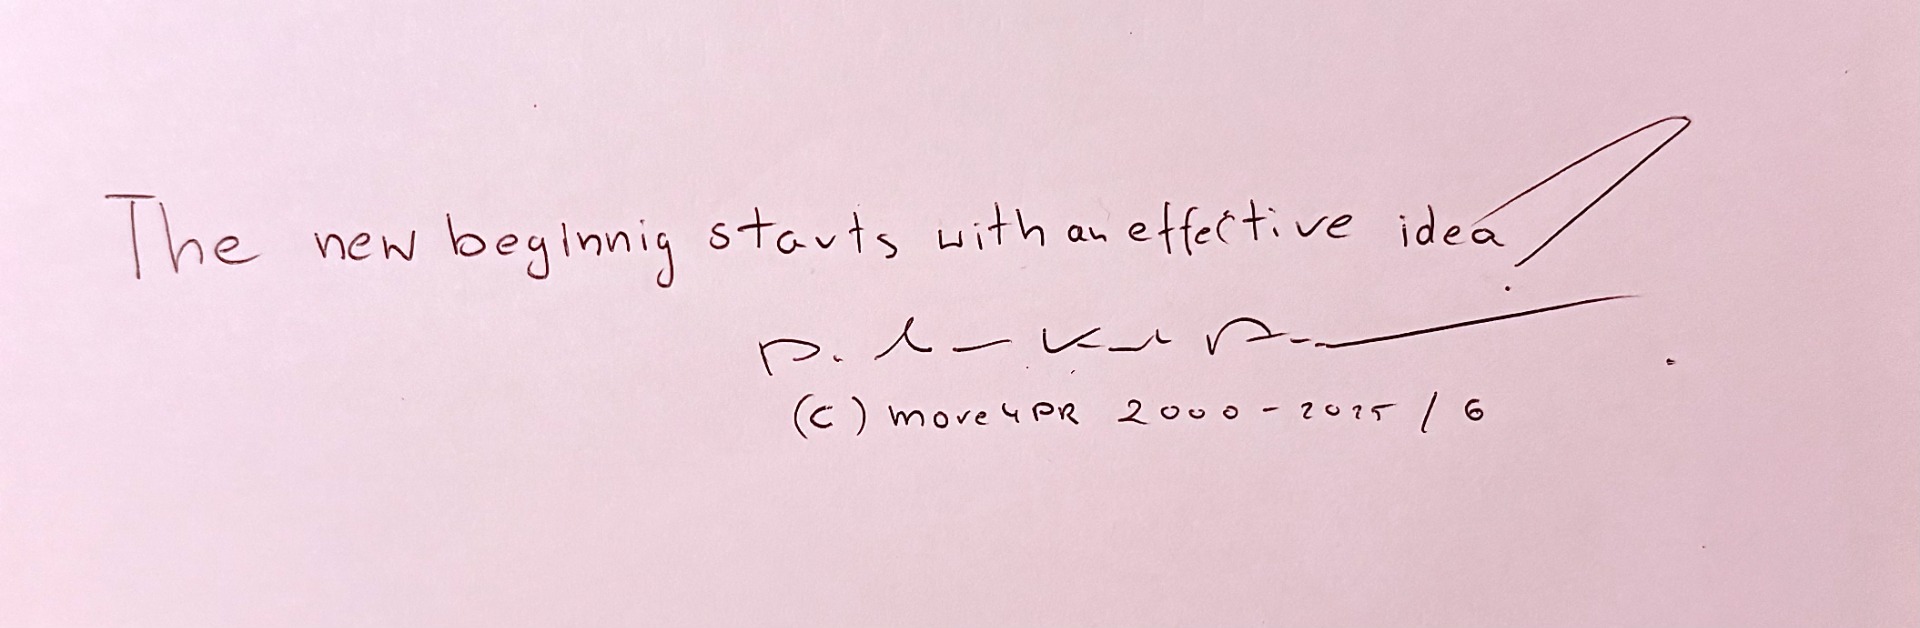 The new beginnig starts with an effective idea!
(c) move4PR 2000-2025/6